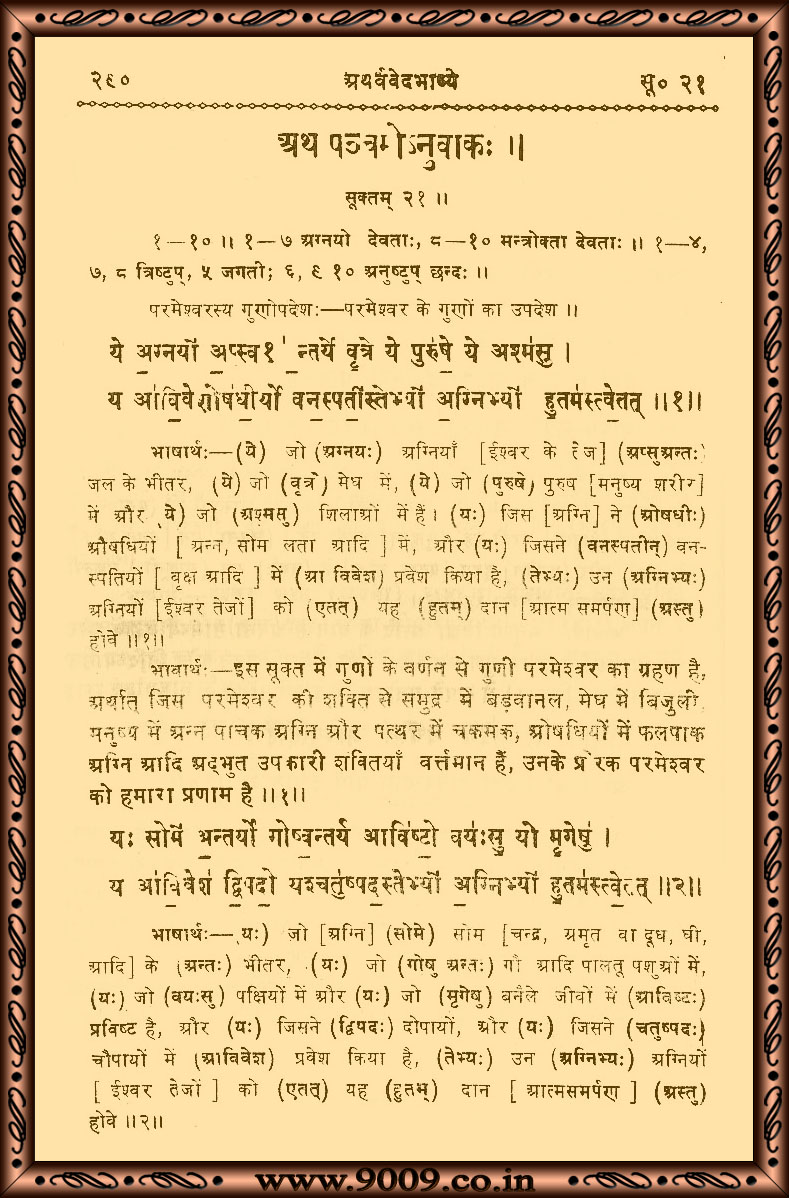 २९० अथर्ववेदभाष्ये सू० २१
अथ पञ्चमोऽनुवाकः ।।
सूक्तम् २१ ।।
१—१० ।। १—७ अग्नयो देवताः, ८—१० मन्त्रोक्ता देवताः ।। १—४,
७, ८ त्रिष्टुप्, ५ जगती; ६, ९ १० अनुष्टुप् छन्दः ।।
परमेश्वरस्य गुणोपदेशः—परमेश्वर के गुणों का उपदेश ।।
ये अ॒ग्नयो॑ अ॒प्स्व१॑न्तर्ये वृ॒त्रे ये पुरु॑षे॒ ये अश्म॑सु॒ ।
य आ॑वि॒वेशोष॑धी॒र्यो वन॒स्पतीं॒स्तेभ्यो॑ अ॒ग्निभ्यो॑ हु॒तम॑स्त्वे॒तत् ।।१।।
भाषार्थः—(ये) जो (अग्नयः) अग्नियाँ [ईश्वर के तेज] (अप्सुअन्तः)
जल के भीतर, (ये) जो (वृत्रे) मेघ में, (ये) जो (पुरुषे) पुरुष [मनुष्य शरीर]
में और (ये) जो (अश्मसु) शिलाओं में हैं। (यः) जिस [अग्नि] ने (ओषधीः)
औषधियों [ अन्न, सोम लता आदि ] में, और (यः) जिसने (वनस्पतीन्) वन-
स्पतियों [ वृक्ष आदि ] में (आ विवेश) प्रवेश किया है, (तेभ्यः) उन (अग्निभ्यः)
अग्नियों [ईश्वर तेजों] को (एतत्) यह (हुतम्) दान [आत्म समर्पण] (अस्तु)
होवे ।।१।।
भावार्थः—इस सूक्त में गुणों के वर्णन से गुणी परमेश्वर का ग्रहण है,
अर्थात् जिस परमेश्वर की शक्ति से समुद्र में बड़वानल, मेघ में बिजुली,
मनुष्य में अन्न पाचक अग्नि और पत्थर में चकमक, ओषधियों में फलपाक
अग्नि आदि अद्भुत उपकारी शक्तियाँ वर्त्तमान हैं, उनके प्रेरक परमेश्वर
को हमारा प्रणाम है ।।१।।
यः सोमे॑ अ॒न्तर्यो गोष्व॒न्तर्य आवि॑ष्टो॒ वयः॑सु॒ यो मृ॒गेषु॑ ।
य आ॑वि॒वेश॑ द्वि॒पदो॒ यश्चतु॑ष्पद॒स्तेभ्यो॑ अ॒ग्निभ्यो॑ हु॒तम॑स्त्वे॒तत् ।।२।।
भाषार्थः—(यः) जो [अग्नि] (सोमे) सोम [चन्द्र, अमृत वा दूध, घी,
आदि] के (अन्तः) भीतर, (यः) जो (गोषु अन्तः) गौ आदि पालतू पशुओं में,
(यः) जो (वयःसु) पक्षियों में और (यः) जो (मृगेषु) बनैले जीवों में (आविष्टः)
प्रविष्ट है, और (यः) जिसने (द्विपदः) दोपायों, और (यः) जिसने (चतुष्पदः)
चौपायों में (आविवेश) प्रवेश किया है, (तेभ्यः) उन (अग्निभ्यः) अग्नियों
[ ईश्वर तेजों ] को (एतत्) यह (हुतम्) दान [ आत्मसमर्पण ] (अस्तु)
होवे ।।२।।
www.9009.co.in